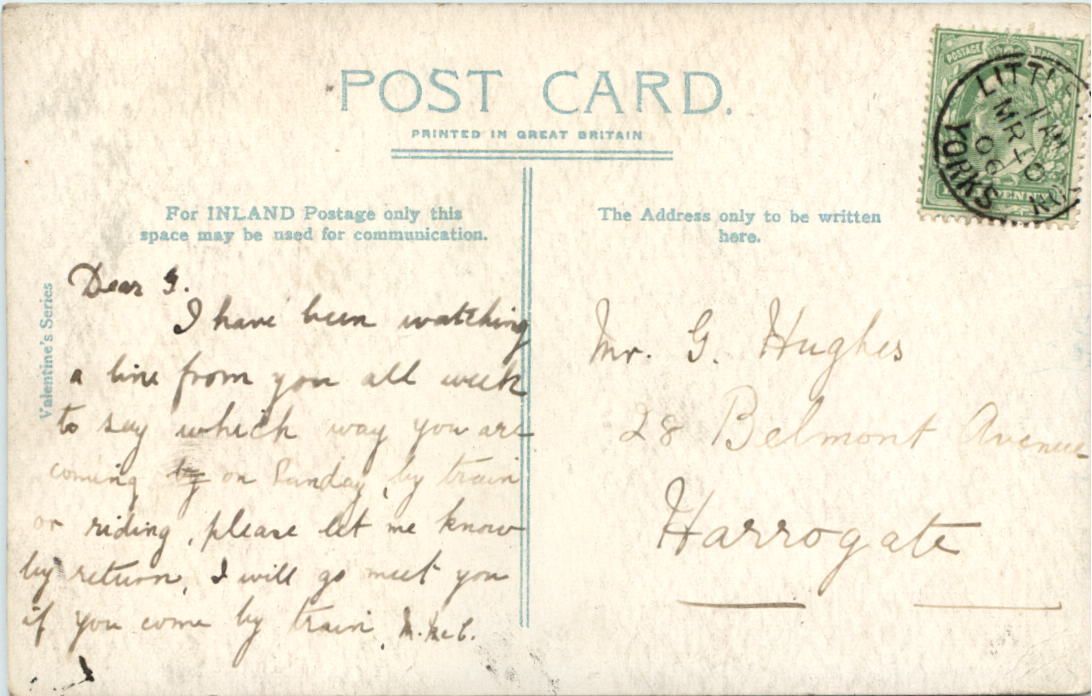 POST CARD.
PRINTED IN GREAT BRITAIN
For INLAND Postage only this
space may be used for communication.
The Address only to be written
here.
Valentine's Series
POSTAGE
LITTLE
MR 10
06
YORKS
Dear G.
I have been watching
a line from you all week
to say which way you are
coming by on Sunday, by train
or riding, please let me know
by return, I will go meet you
if you come by train
Mr. G. Hughes
28 Belmont Avenue
Harrogate